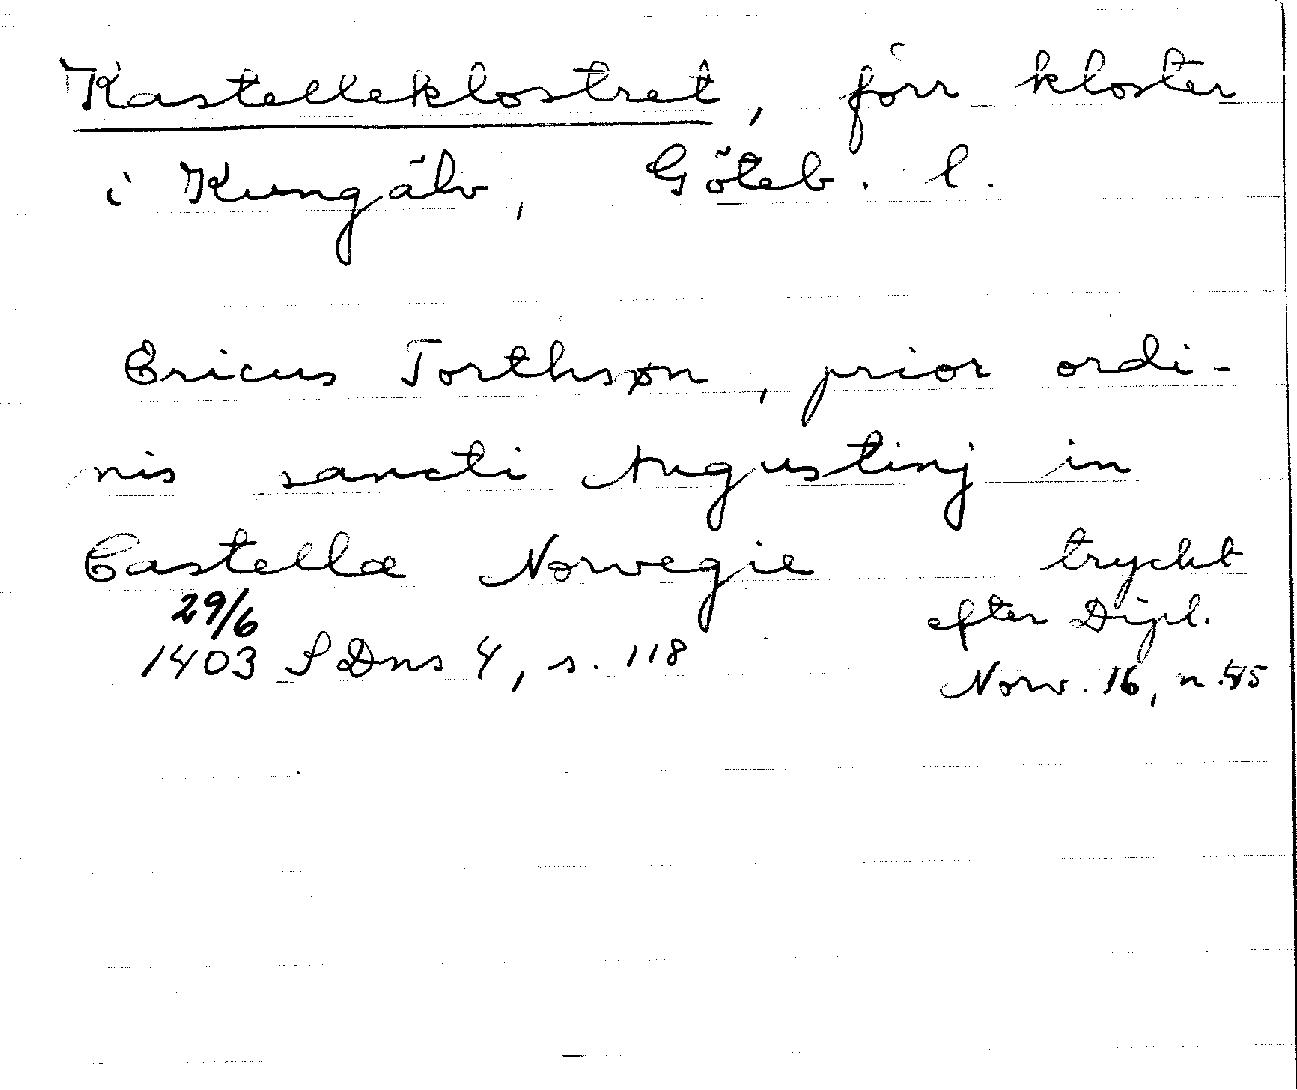 Kastelleklostret, förr kloster
i Kungälv, Göteb. l.
Ericus Torthsøn, prior ordi-
nis sancti Augustinj in
Castella Norwegie tryckt
29/6 efter Dipl.
1403 SDns 4, s. 118 Norw. 16, n.